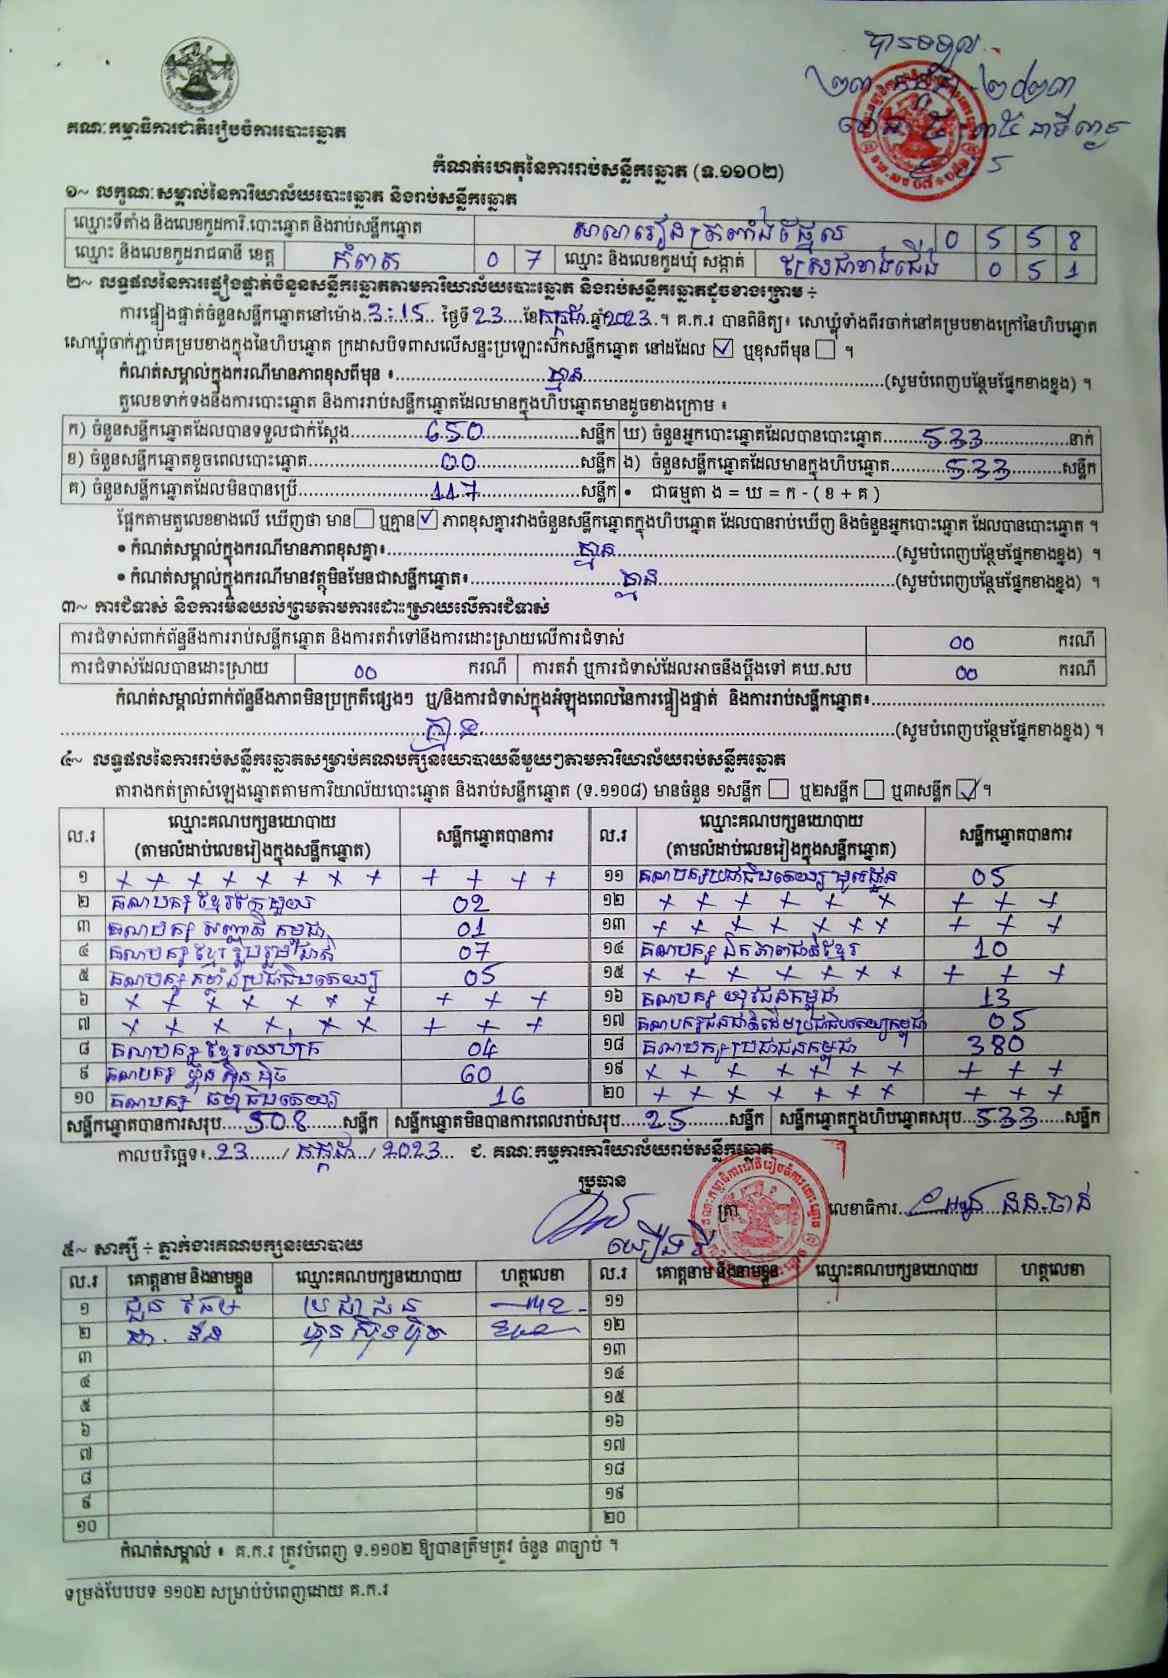 បានទទួល
២៣ ២០២៣
គណៈកម្មាធិការជាតិរៀបចំការបោះឆ្នោត
កំណត់ហេតុនៃការរាប់សន្លឹកឆ្នោត (ទ.១១០២)
១~ លក្ខណៈសម្គាល់នៃការិយាល័យបោះឆ្នោត និងរាប់សន្លឹកឆ្នោត
ឈ្មោះទីតាំង និងលេខកូដការិ.បោះឆ្នោត និងរាប់សន្លឹកឆ្នោត សាលារៀនត្រពាំង 0 5 5 8
ឈ្មោះ និងលេខកូដរាជធានី ខេត្ត កំពត 0 7 ឈ្មោះ និងលេខកូដឃុំ សង្កាត់ ស្រែជាខាងជើង 0 5 1
២~ លទ្ធផលនៃការផ្ទៀងផ្ទាត់ចំនួនសន្លឹកឆ្នោតតាមការិយាល័យបោះឆ្នោត និងរាប់សន្លឹកឆ្នោតដូចខាងក្រោម ÷
ការផ្ទៀងផ្ទាត់ចំនួនសន្លឹកឆ្នោតនៅម៉ោង 3:15 ថ្ងៃទី 23 ខែ កក្កដា ឆ្នាំ 2023 ។ គ.ក.រ បានពិនិត្យ៖ សោឃ្លុំទាំងពីរចាក់នៅគម្របខាងក្រៅនៃហិបឆ្នោត
សោឃ្លុំចាក់ភ្ជាប់គម្របខាងក្នុងនៃហិបឆ្នោត ក្រដាសបិទពាសលើសន្ទះប្រឡោះស៊កសន្លឹកឆ្នោត នៅដដែល ☑ ឬខុសពីមុន ☐ ។
កំណត់សម្គាល់ក្នុងករណីមានភាពខុសពីមុន ៖ គ្មាន (សូមបំពេញបន្ថែមផ្នែកខាងខ្នង) ។
តួលេខទាក់ទងនឹងការបោះឆ្នោត និងការរាប់សន្លឹកឆ្នោតដែលមានក្នុងហិបឆ្នោតមានដូចខាងក្រោម ៖
ក) ចំនួនសន្លឹកឆ្នោតដែលបានទទួលជាក់ស្ដែង 650 សន្លឹក ឃ) ចំនួនអ្នកបោះឆ្នោតដែលបានបោះឆ្នោត 533 នាក់
ខ) ចំនួនសន្លឹកឆ្នោតខូចពេលបោះឆ្នោត 00 សន្លឹក ង) ចំនួនសន្លឹកឆ្នោតដែលមានក្នុងហិបឆ្នោត 533 សន្លឹក
គ) ចំនួនសន្លឹកឆ្នោតដែលមិនបានប្រើ 117 សន្លឹក • ជាធម្មតា ង = ឃ = ក - ( ខ + គ )
ផ្អែកតាមតួលេខខាងលើ ឃើញថា មាន ☐ ឬគ្មាន ☑ ភាពខុសគ្នារវាងចំនួនសន្លឹកឆ្នោតក្នុងហិបឆ្នោត ដែលបានរាប់ឃើញ និងចំនួនអ្នកបោះឆ្នោត ដែលបានបោះឆ្នោត ។
• កំណត់សម្គាល់ក្នុងករណីមានភាពខុសគ្នា៖ គ្មាន (សូមបំពេញបន្ថែមផ្នែកខាងខ្នង) ។
• កំណត់សម្គាល់ក្នុងករណីមានវត្ថុមិនមែនជាសន្លឹកឆ្នោត៖ គ្មាន (សូមបំពេញបន្ថែមផ្នែកខាងខ្នង) ។
៣~ ការជំទាស់ និងការមិនយល់ព្រមតាមការដោះស្រាយលើការជំទាស់
ការជំទាស់ពាក់ព័ន្ធនឹងការរាប់សន្លឹកឆ្នោត និងការតវ៉ាទៅនឹងការដោះស្រាយលើការជំទាស់ 00 ករណី
ការជំទាស់ដែលបានដោះស្រាយ 00 ករណី ការតវ៉ា ឬការជំទាស់ដែលអាចនឹងប្ដឹងទៅ គឃ.សប 00 ករណី
កំណត់សម្គាល់ពាក់ព័ន្ធនឹងភាពមិនប្រក្រតីផ្សេងៗ ឬ/និងការជំទាស់ក្នុងអំឡុងពេលនៃការផ្ទៀងផ្ទាត់ និងការរាប់សន្លឹកឆ្នោត៖
គ្មាន (សូមបំពេញបន្ថែមផ្នែកខាងខ្នង) ។
៤~ លទ្ធផលនៃការរាប់សន្លឹកឆ្នោតសម្រាប់គណបក្សនយោបាយនីមួយៗតាមការិយាល័យរាប់សន្លឹកឆ្នោត
តារាងកត់ត្រាសំឡេងឆ្នោតតាមការិយាល័យបោះឆ្នោត និងរាប់សន្លឹកឆ្នោត (ទ.១១០៨) មានចំនួន ១សន្លឹក ☐ ឬ២សន្លឹក ☐ ឬ៣សន្លឹក ☑ ។
ល.រ ឈ្មោះគណបក្សនយោបាយ (តាមលំដាប់លេខរៀងក្នុងសន្លឹកឆ្នោត) សន្លឹកឆ្នោតបានការ ល.រ ឈ្មោះគណបក្សនយោបាយ (តាមលំដាប់លេខរៀងក្នុងសន្លឹកឆ្នោត) សន្លឹកឆ្នោតបានការ
១ + + + + + + + + + + + + ១១ គណបក្សប្រជាធិបតេយ្យមូលដ្ឋាន 05
២ គណបក្ស ខ្មែរតែមួយ 02 ១២ + + + + + + + + +
៣ គណបក្ស សញ្ជាតិ កម្ពុជា 01 ១៣ + + + + + + + + + +
៤ គណបក្ស ខ្មែរ រួបរួមជាតិ 07 ១៤ គណបក្ស ឯកភាពជាតិខ្មែរ 10
៥ គណបក្ស កម្លាំងប្រជាធិបតេយ្យ 05 ១៥ + + + + + + + + + +
៦ + + + + + + + + + + ១៦ គណបក្ស យុវជនកម្ពុជា 13
៧ + + + + + + + + + ១៧ គណបក្សជនជាតិដើមប្រជាធិបតេយ្យកម្ពុជា 05
៨ គណបក្ស ខ្មែរឈប់ក្រ 04 ១៨ គណបក្សប្រជាជនកម្ពុជា 380
៩ គណបក្ស ហ៊្វុនស៊ិនប៉ិច 60 ១៩ + + + + + + + + + +
១០ គណបក្ស ធម្មាធិបតេយ្យ 16 ២០ + + + + + + + + + +
សន្លឹកឆ្នោតបានការសរុប 508 សន្លឹក សន្លឹកឆ្នោតមិនបានការពេលរាប់សរុប 25 សន្លឹក សន្លឹកឆ្នោតក្នុងហិបឆ្នោតសរុប 533 សន្លឹក
កាលបរិច្ឆេទ៖ 23 / កក្កដា / 2023 ជ. គណៈកម្មការការិយាល័យរាប់សន្លឹកឆ្នោត
ប្រធាន ត្រា លេខាធិការ
៥~ សាក្សី ÷ ភ្នាក់ងារគណបក្សនយោបាយ
ល.រ គោត្តនាម និងនាមខ្លួន ឈ្មោះគណបក្សនយោបាយ ហត្ថលេខា ល.រ គោត្តនាម និងនាមខ្លួន ឈ្មោះគណបក្សនយោបាយ ហត្ថលេខា
១ ប្រជាជន ១១
២ ហ៊្វុនស៊ិនប៉ិច ១២
៣ ១៣
៤ ១៤
៥ ១៥
៦ ១៦
៧ ១៧
៨ ១៨
៩ ១៩
១០ ២០
កំណត់សម្គាល់ ៖ គ.ក.រ ត្រូវបំពេញ ទ.១១០២ ឱ្យបានត្រឹមត្រូវ ចំនួន ៣ច្បាប់ ។
ទម្រង់បែបបទ ១១០២ សម្រាប់បំពេញដោយ គ.ក.រ